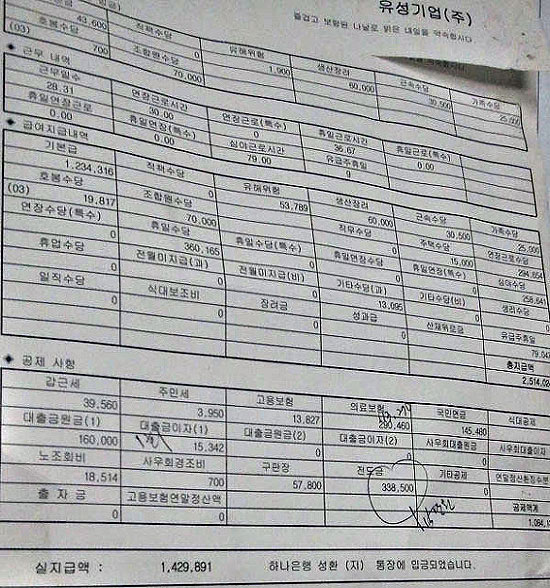 유성기업(주)
즐겁고 보람된 나날로 밝은 내일을 약속합시다
43,600 직책수당 유해위험 생산장려 근속수당 가족수당
(03) 호봉수당 0 1,900 60,000 30,500 25,00
700 조합원수당
70,000
◆ 근무 내역
근무일수 연장근로시간 연장근로(특수) 휴일근로시간 휴일근로(특수)
28.31 30.00 0 36.67 0.00
휴일연장근로 휴일연장(특수) 심야근로시간 유급주휴일
0.00 0.00 79.00 0
◆ 급여지급내역
기본급 직책수당 유해위험 생산장려 근속수당 가족수당
1,234,316 0 53,789 60,000 30,500 25,000
(03) 호봉수당 조합원수당 직무수당 주택수당 연장근로수당
19,817 70,000 0 15,000 294,654
연장수당(특수) 휴일수당 휴일수당(특수) 휴일연장수당 휴일연장(특수) 심야수당
0 360,165 0 0 0 258,641
휴업수당 전월미지급(과) 전월미지급(비) 기타수당(과) 기타수당(비) 생리수당
0 0 0 13,095 0 0
일직수당 식대보조비 장려금 성과급 산재위로금 유급주휴일
0 0 0 0 79,04
총지급액
2,514,02
◆ 공제 사항
갑근세 주민세 고용보험 의료보험 국민연금 식대공제
39,560 3,950 13,827 290,460 145,460
대출금원금(1) 대출금이자(1) 대출금원금(2) 대출금이자(2) 사우회대출원금 사우회대출이자
160,000 15,342 0 0 0
노조회비 사우회경조비 구판장 전도금 기타공제 연말정산환징수분
18,514 700 57,800 338,500 0
출 자 금 고용보험연말정산액 공제액계
0 0 0 1,084,1
실지급액 : 1,429,891 하나은행 성환 (지) 통장에 입금되었습니다.